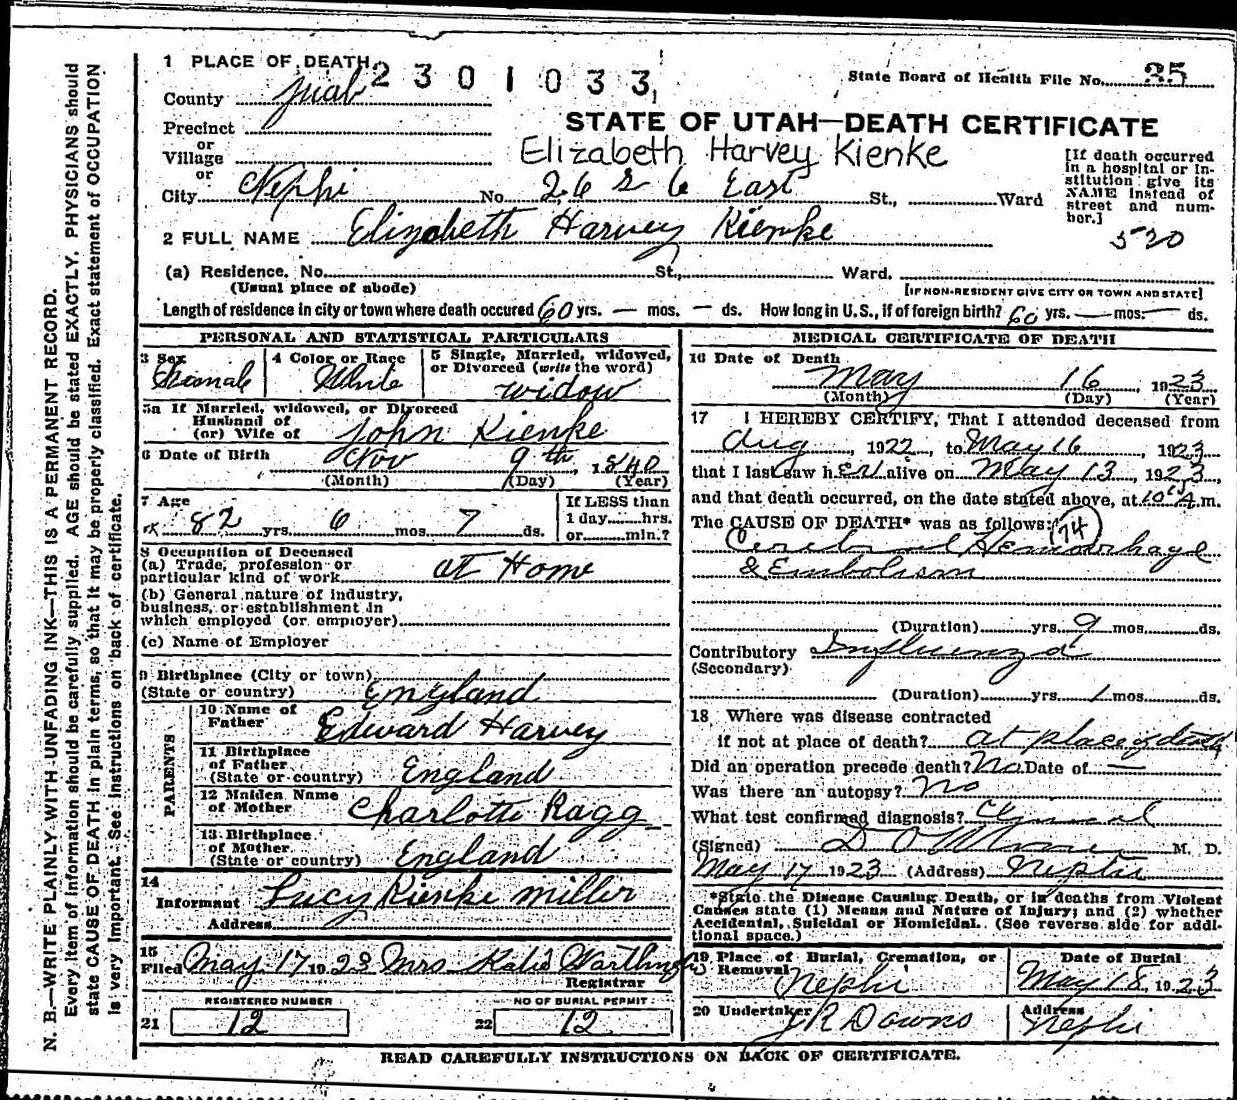 1 PLACE OF DEATH 2301033
State Board of Health File No. 25
County Juab
STATE OF UTAH—DEATH CERTIFICATE
Precinct
or
Village
Elizabeth Harvey Kienke
or
City Nephi No. 26 S 6 East St., Ward
[If death occurred in a hospital or in-
stitution give its
NAME instead of
street and num-
ber.]
530
2 FULL NAME Elizabeth Harvey Kienke
(a) Residence. No. St., Ward.
(Usual place of abode)
[IF NON-RESIDENT GIVE CITY OR TOWN AND STATE]
Length of residence in city or town where death occured 60 yrs. — mos. — ds. How long in U.S., if of foreign birth? 60 yrs. — mos. — ds.
PERSONAL AND STATISTICAL PARTICULARS
3 Sex Female
4 Color or Race White
5 Single, Married, widowed,
or Divorced (write the word)
widow
5a If Married, widowed, or Divorced
Husband of
(or) Wife of John Kienke
6 Date of Birth Nov 9th, 1840
(Month) (Day) (Year)
7 Age
ok 82 yrs. 6 mos. 7 ds.
If LESS than
1 day hrs.
or min.?
8 Occupation of Deceased
(a) Trade, profession or
particular kind of work at Home
(b) General nature of industry,
business, or establishment in
which employed (or employer)
(c) Name of Employer
9 Birthplace (City or town)
(State or country) England
PARENTS
10 Name of
Father Edward Harvey
11 Birthplace
of Father
(State or country) England
12 Maiden Name
of Mother Charlotte Ragg
13 Birthplace
of Mother
(State or country) England
14
Informant Lucy Kienke Miller
Address
15
Filed May 17 1923 Mrs Katie
Registrar
REGISTERED NUMBER
21 12
NO OF BURIAL PERMIT
22 12
MEDICAL CERTIFICATE OF DEATH
16 Date of Death
May 16, 1923
(Month) (Day) (Year)
17 I HEREBY CERTIFY, That I attended deceased from
Aug, 1922, to May 16, 1923
that I last saw her alive on May 13, 1923,
and that death occurred, on the date stated above, at 10 A.m.
The CAUSE OF DEATH* was as follows: 74
Cerebral Hemorrhage
& Embolism
(Duration) yrs. 9 mos. ds.
Contributory Influenza
(Secondary)
(Duration) yrs. 1 mos. ds.
18 Where was disease contracted
if not at place of death? at place of death
Did an operation precede death? No Date of —
Was there an autopsy? No
What test confirmed diagnosis? Clynical
(Signed) M. D.
May 17 1923 (Address) Nephi
*State the Disease Causing Death, or in deaths from Violent
Causes state (1) Means and Nature of Injury; and (2) whether
Accidental, Suicidal or Homicidal. (See reverse side for addi-
tional space.)
19 Place of Burial, Cremation, or
Removal
Nephi
Date of Burial
May 18, 1923
20 Undertaker
J R Downs
Address
Nephi
READ CAREFULLY INSTRUCTIONS ON BACK OF CERTIFICATE.
N. B.—WRITE PLAINLY WITH UNFADING INK—THIS IS A PERMANENT RECORD.
Every item of information should be carefully supplied. AGE should be stated EXACTLY. PHYSICIANS should
state CAUSE OF DEATH in plain terms, so that it may be properly classified. Exact statement of OCCUPATION
is very important. See instructions on back of certificate.